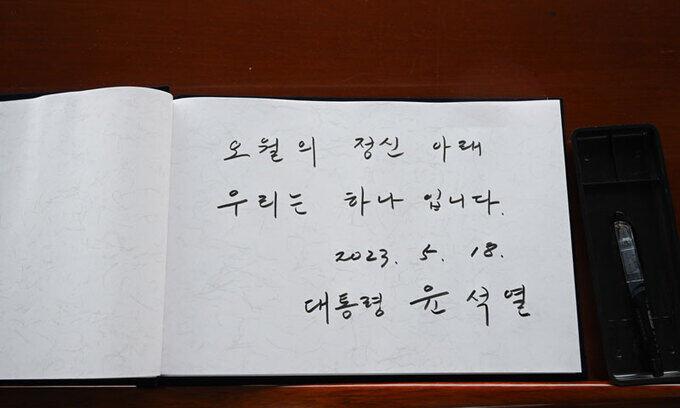 오월의 정신 아래
우리는 하나입니다.
2023. 5. 18.
대통령 윤석열